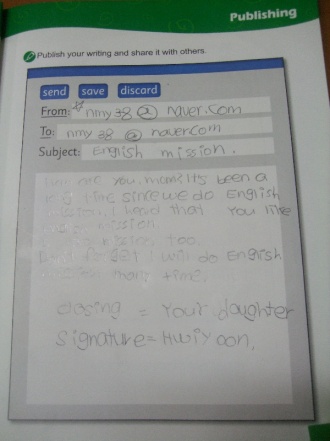 Publishing
Publish your writing and share it with others.
send save discard
From: nmy38@naver.com
To: nmy38@naver.com
Subject: English mission.
are you, mom? It's been a
time since we do English
mission. I head that you like
mission.
too.
I will do English
many time.
closing = Your daughter
signature = Hwiyoon.